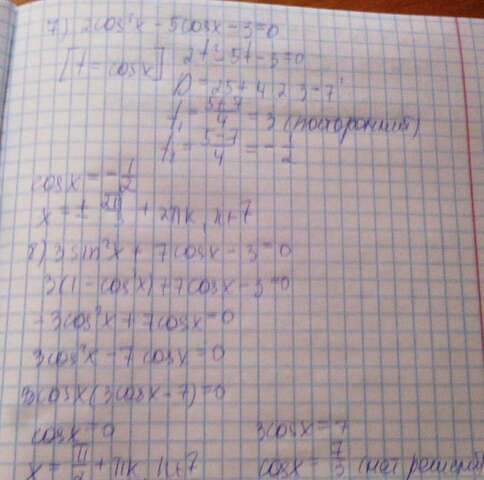 7) 2cos²x - 5cosx - 3 = 0
[t = cosx] 2t² - 5t - 3 = 0
D = 25 + 4·2·3 = 7²
t₁ = (5+7)/4 = 3 (посторонний)
t₂ = (5-7)/4 = -1/2
cosx = -1/2
x = ± 2π/3 + 2πk, k∈Z
8) 3sin²x + 7cosx - 3 = 0
3(1 - cos²x) + 7cosx - 3 = 0
-3cos²x + 7cosx = 0
3cos²x - 7cosx = 0
cosx(3cosx - 7) = 0
cosx = 0 3cosx = 7
x = π/2 + πk, k∈Z cosx = 7/3 (нет решений)